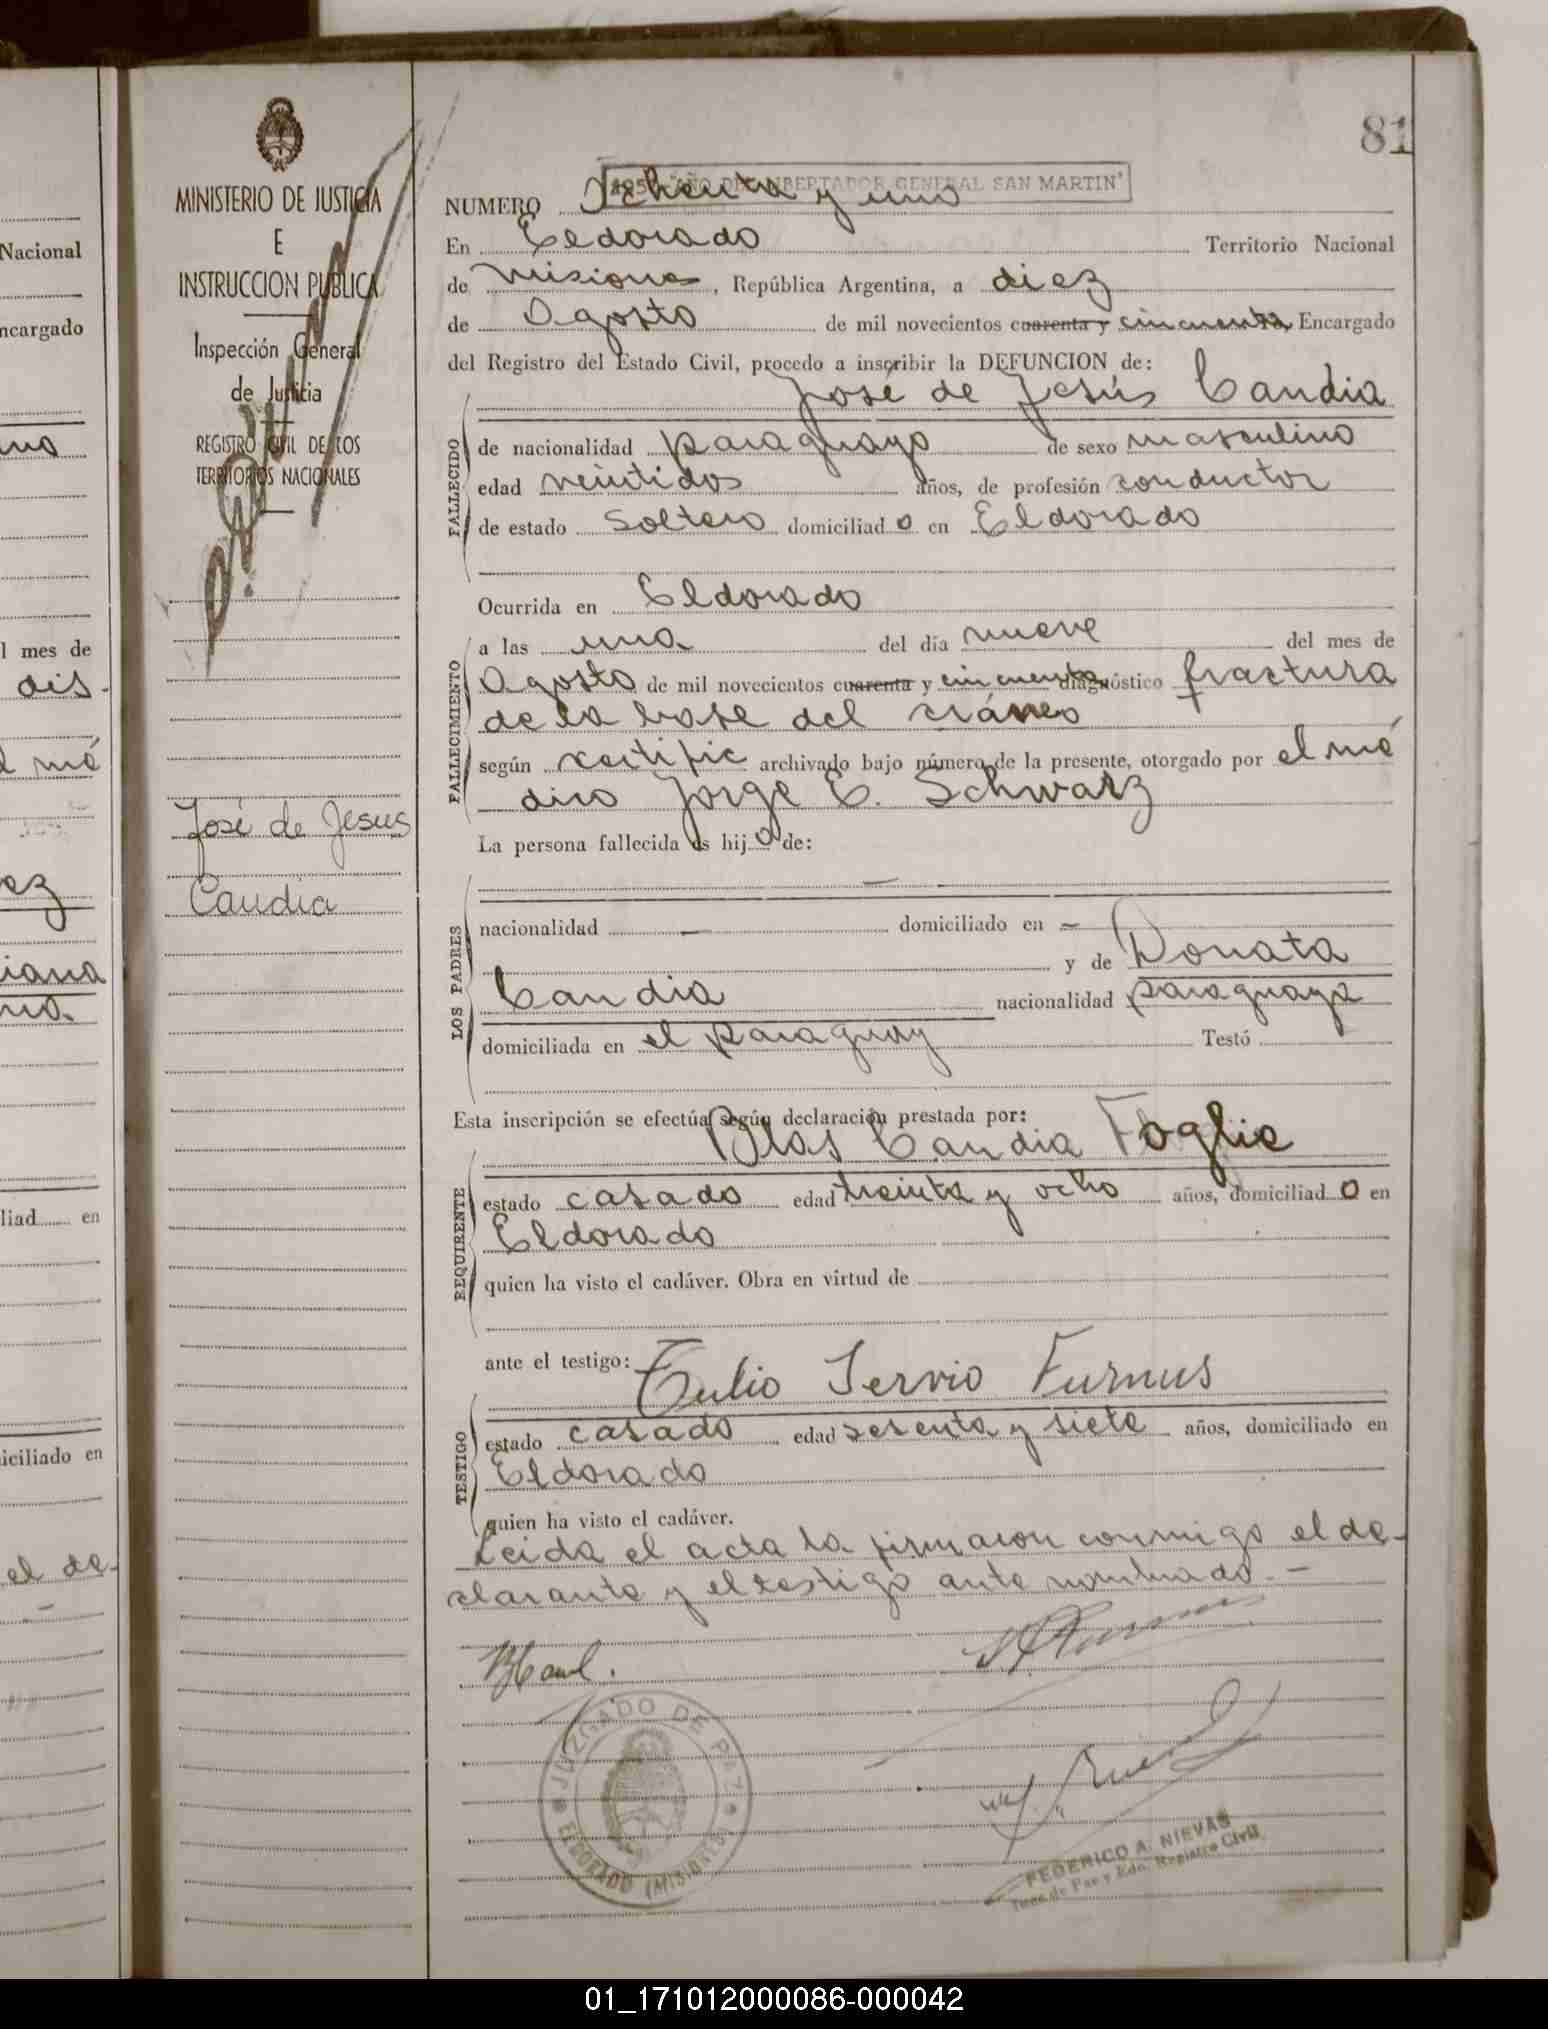 81
MINISTERIO DE JUSTICIA
E
INSTRUCCION PUBLICA
Inspección General
de Justicia
REGISTRO CIVIL DE LOS
TERRITORIOS NACIONALES
José de Jesus
Candia
1950 "AÑO DEL LIBERTADOR GENERAL SAN MARTIN"
NUMERO Ochenta y uno
En Eldorado Territorio Nacional
de Misiones, República Argentina, a diez
de Agosto de mil novecientos cuarenta y cincuenta, Encargado
del Registro del Estado Civil, procedo a inscribir la DEFUNCION de:
José de Jesús Candia
FALLECIDO
de nacionalidad paraguayo de sexo masculino
edad veintidos años, de profesión conductor
de estado soltero domiciliado en Eldorado
Ocurrida en Eldorado
FALLECIMIENTO
a las una del día nueve del mes de
Agosto de mil novecientos cuarenta y cincuenta diagnóstico fractura
de la base del cráneo
según certific archivado bajo número de la presente, otorgado por el mé
dico Jorge E. Schwarz
La persona fallecida es hijo de:
—
LOS PADRES
nacionalidad — domiciliado en —
y de Donata
Candia nacionalidad paraguaya
domiciliada en el paraguay Testó
Esta inscripción se efectúa según declaración prestada por:
Blas Candia Foglie
REQUIRENTE
estado casado edad treinta y ocho años, domiciliado en
Eldorado
quien ha visto el cadáver. Obra en virtud de
ante el testigo: Tulio Servio Furnus
TESTIGO
estado casado edad sesenta y siete años, domiciliado en
Eldorado
quien ha visto el cadáver.
Leida el acta la firmaron conmigo el de-
clarante y el testigo ante nombrado. —
JUZGADO DE PAZ
ELDORADO (MISIONES)
FEDERICO A. NIEVAS
Juez de Paz y Edo. Registro Civil
Nacional
ncargado
l mes de
dis-
l mé
ez
iana
na.
liad en
iciliado en
el de-
01_171012000086-000042